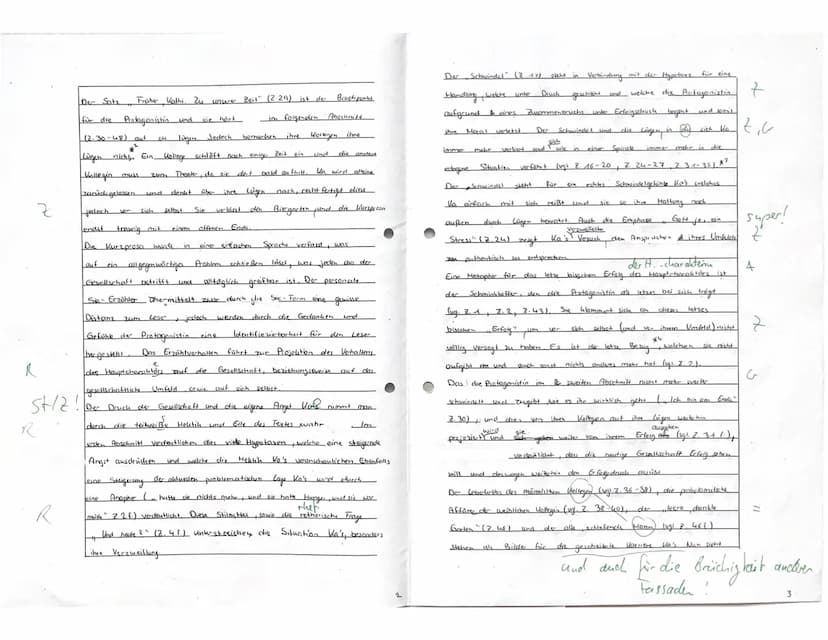 Der Satz „Frohe, Kathi. Zu unsrer Zeit" (Z.24) ist der
für die Protagonistin und sie hört im folgenden Abschnitt
(Z.30-48) auf zu lügen. Jedoch bemerken ihre Kollegen ihre
Lügen nicht. Ein Kollege schläft nach einiger Zeit ein und die andere
Kollegin muss zum Theater, da sie dort bald auftritt. Ka wird alleine
zurückgelassen und denkt über ihre Lügen nach, rechtfertigt diese
jedoch vor sich selbst. Sie verlässt den Biergarten und die Kurzprosa
endet traurig mit einem offenen Ende.
Die Kurzprosa wurde in einer einfachen Sprache verfasst, was
auf ein allgegenwärtiges Problem schließen lässt, was jeden aus der
Gesellschaft betrifft und alltäglich greifbar ist. Der personale
Sie-Erzähler übermittelt zwar durch die Sie-Form eine gewisse
Distanz zum Leser, jedoch werden durch die Gedanken und
Gefühle der Protagonistin eine Identifizierbarkeit für den Leser
hergestellt. Das Erzählverhalten führt zur Projektion des Verhaltens
des Hauptcharakters auf die Gesellschaft, beziehungsweise auf das
gesellschaftliche Umfeld sowie auf sich selbst.
Der Druck der Gesellschaft und die eigene Angst Kas nimmt man
durch die teilweise Hektik und Eile des Textes wahr. Im
ersten Abschnitt verdeutlichen dies viele Hypotaxen, welche eine steigende
Angst ausdrücken und welche die Hektik Ka's veranschaulichen. Ebenfalls
eine Steigerung der aktuellen problematischen Lage Ka's wird durch
eine Anapher („hatte sie nichts mehr, und sie hatte Hunger, und sie war
müde" Z.2f.) verdeutlicht. Diese Stilmittel, sowie die rhetorische Frage
„Und heute?" (Z.4f.), unterstreichen die Situation Ka's, besonders
ihre Verzweiflung.
Z
R
St/Z!
R
R
rhet
2
Der „Schwindel" (Z.17) steht in Verbindung mit der Hypotaxe für eine
Handlung, welche unter Druck geschieht und welche die Protagonistin
aufgrund eines Zusammenbruchs unter Erfolgsdruck begeht und somit
ihre Moral verletzt. Der Schwindel und die Lügen, in die sich Ka
immer mehr verliert und wie in einer Spirale immer mehr in die
erlogene Situation verfährt (vgl. Z.16-20, Z.24-27, Z.31-35).
Der „Schwindel" steht für ein echtes Schwindelgefühl Ka's, welches
Ka einfach mit sich reißt und sie so ihre Haltung nach
außen durch Lügen bewahrt. Auch die Emphase „Gott ja, ein
Stress" (Z.24) zeigt Ka's verzweifelte Versuch, den Ansprüchen ihres Umfelds
zu authentisch zu entsprechen.
der H.-charakterin
Eine Metapher für das letzte bisschen Erfolg des Hauptcharakters ist
der Schminkkoffer, den die Protagonistin als letztes bei sich trägt
(vgl. Z.1, Z.2, Z.43). Sie klammert sich an dieses letztes
bisschen „Erfolg" um vor sich selbst (und vor ihrem Umfeld) nicht
völlig versagt zu haben. Es ist der letzte Bezug, welchen sie nicht
aufgibt und auch sonst nichts anderes mehr hat (vgl. Z.2).
Das die Protagonistin im zweiten Abschnitt nicht mehr weiter
schwindelt und zugibt, wie es ihr wirklich geht („Ich bin am Ende"
Z.30), und dies von ihren Kollegen auf ihre Lügen weiterhin
projiziert wird und sie weiter von ihrem Erfolg ausgehen (vgl. Z.31f.),
verdeutlicht, dass die heutige Gesellschaft Erfolg sehen
will und deswegen weiterhin den Erfolgsdruck ausübt.
Der Liebeskreis des männlichen Kollegen (vgl. Z.36-38), die problematische
Affäre der weiblichen Kollegin (vgl. Z.38-40), der „leere, dunkle
Garten" (Z.46) und der alte, schlafende Mann (vgl. Z.46f.)
stehen als Bilder für die gescheiterte Karriere Ka's. Nun nicht
und auch für die Brüchigkeit anderer
Fassaden!
Z
Z, G
super!
Z
A
Z
G
=
3